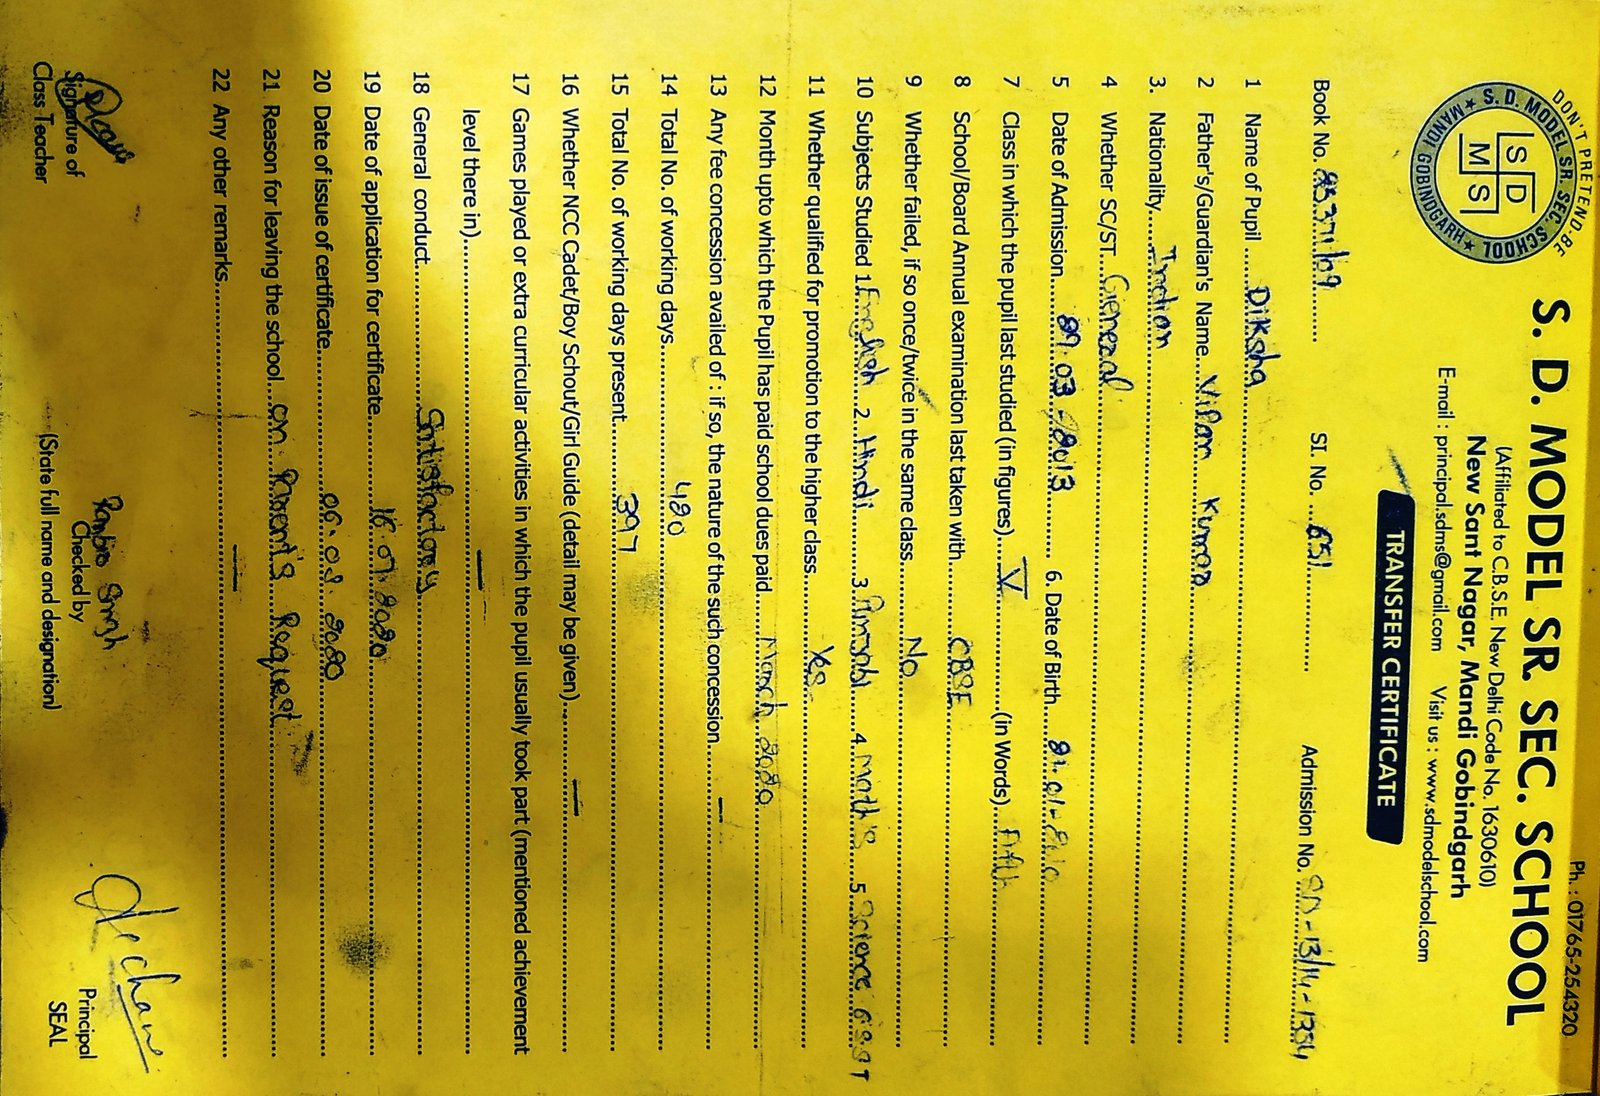 Ph. : 01765-254320
DON'T PRETEND-BE
S. D. MODEL SR. SEC. SCHOOL
MANDI GOBINDGARH
S D
M S
S. D. MODEL SR. SEC. SCHOOL
(Affiliated to C.B.S.E. New Delhi Code No. 1630610)
New Sant Nagar, Mandi Gobindgarh
E-mail : principal.sdms@gmail.com Visit us : www.sdmodelschool.com
TRANSFER CERTIFICATE
Book No. SI. No. 651 Admission No. 13/14-1334
1 Name of Pupil Diksha
2 Father's/Guardian's Name Vipan Kumar
3. Nationality Indian
4 Whether SC/ST General
5 Date of Admission 29.03-2013 6. Date of Birth 21.01-2010
7 Class in which the pupil last studied (in figures) V (in Words) Fifth
8 School/Board Annual examination last taken with CBSE
9 Whether failed, if so once/twice in the same class No
10 Subjects Studied 1. English 2. Hindi 3 Punjabi 4 Maths 5 Science 6 SST
11 Whether qualified for promotion to the higher class Yes
12 Month upto which the Pupil has paid school dues paid March 2020
13 Any fee concession availed of : if so, the nature of the such concession —
14 Total No. of working days 480
15 Total No. of working days present 397
16 Whether NCC Cadet/Boy Schout/Girl Guide (detail may be given) —
17 Games played or extra curricular activities in which the pupil usually took part (mentioned achievement
level there in) —
18 General conduct Satisfactory
19 Date of application for certificate 16.07.2020
20 Date of issue of certificate 06.08.2020
21 Reason for leaving the school on Parent's Request
22 Any other remarks —
Signature of Class Teacher
Singh
Checked by
(State full name and designation)
Principal
SEAL